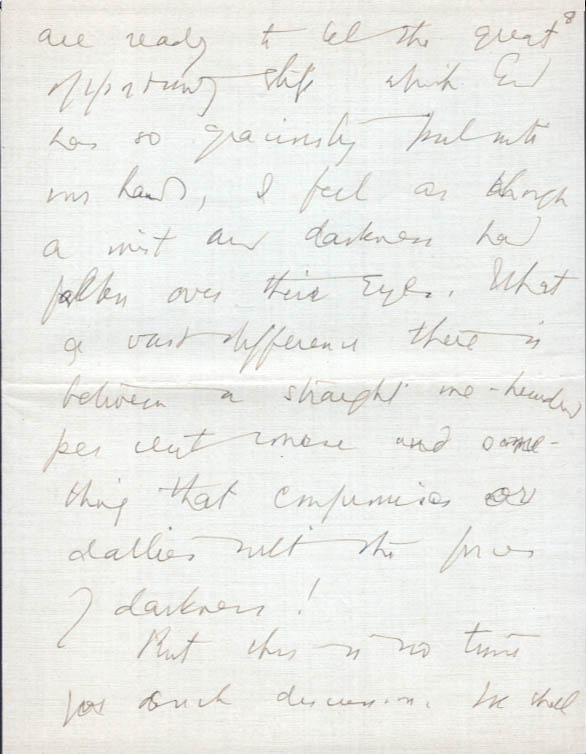 8
are ready to let the great
opportunity slip which God
has so graciously put into
our hands, I feel as though
a mist and darkness had
fallen over their eyes. What
a vast difference there is
between a straight one-hundred
per cent course and some-
thing that compromises or
dallies with the forces
of darkness!
But this is no time
for such discussion. We shall